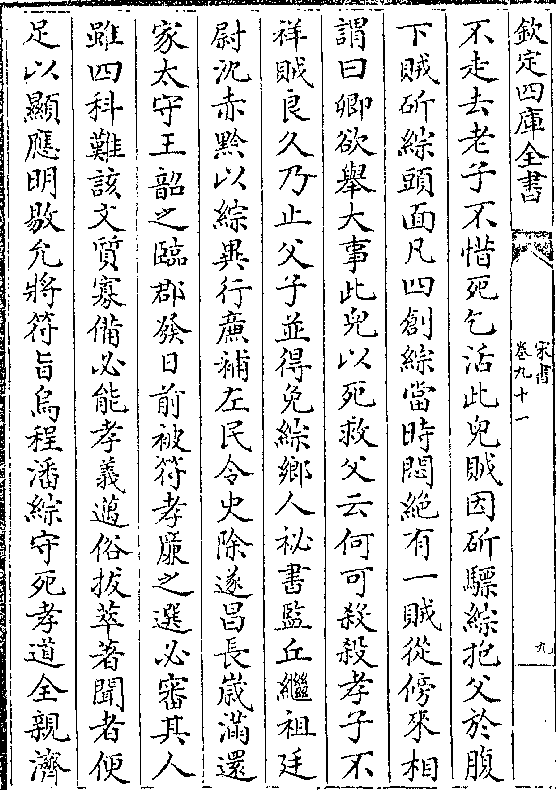 欽定四庫全書
宋書
卷九十一
九
不走去老子不惜死乞活此兒賊因斫驃綜抱父於腹
下賊斫綜頭面凡四創綜當時悶絕有一賊從傍來相
謂曰卿欲舉大事此兒以死救父云何可殺殺孝子不
祥賊良久乃止父子並得免綜鄉人祕書監丘繼祖廷
尉沈赤黔以綜異行薦補左民令史除遂昌長歲滿還
家太守王韶之臨郡發日前被符孝廉之選必審其人
雖四科難該文質寡備必能孝義邁俗拔萃著聞者便
足以顯應明敭允將符旨烏程潘綜守死孝道全親濟